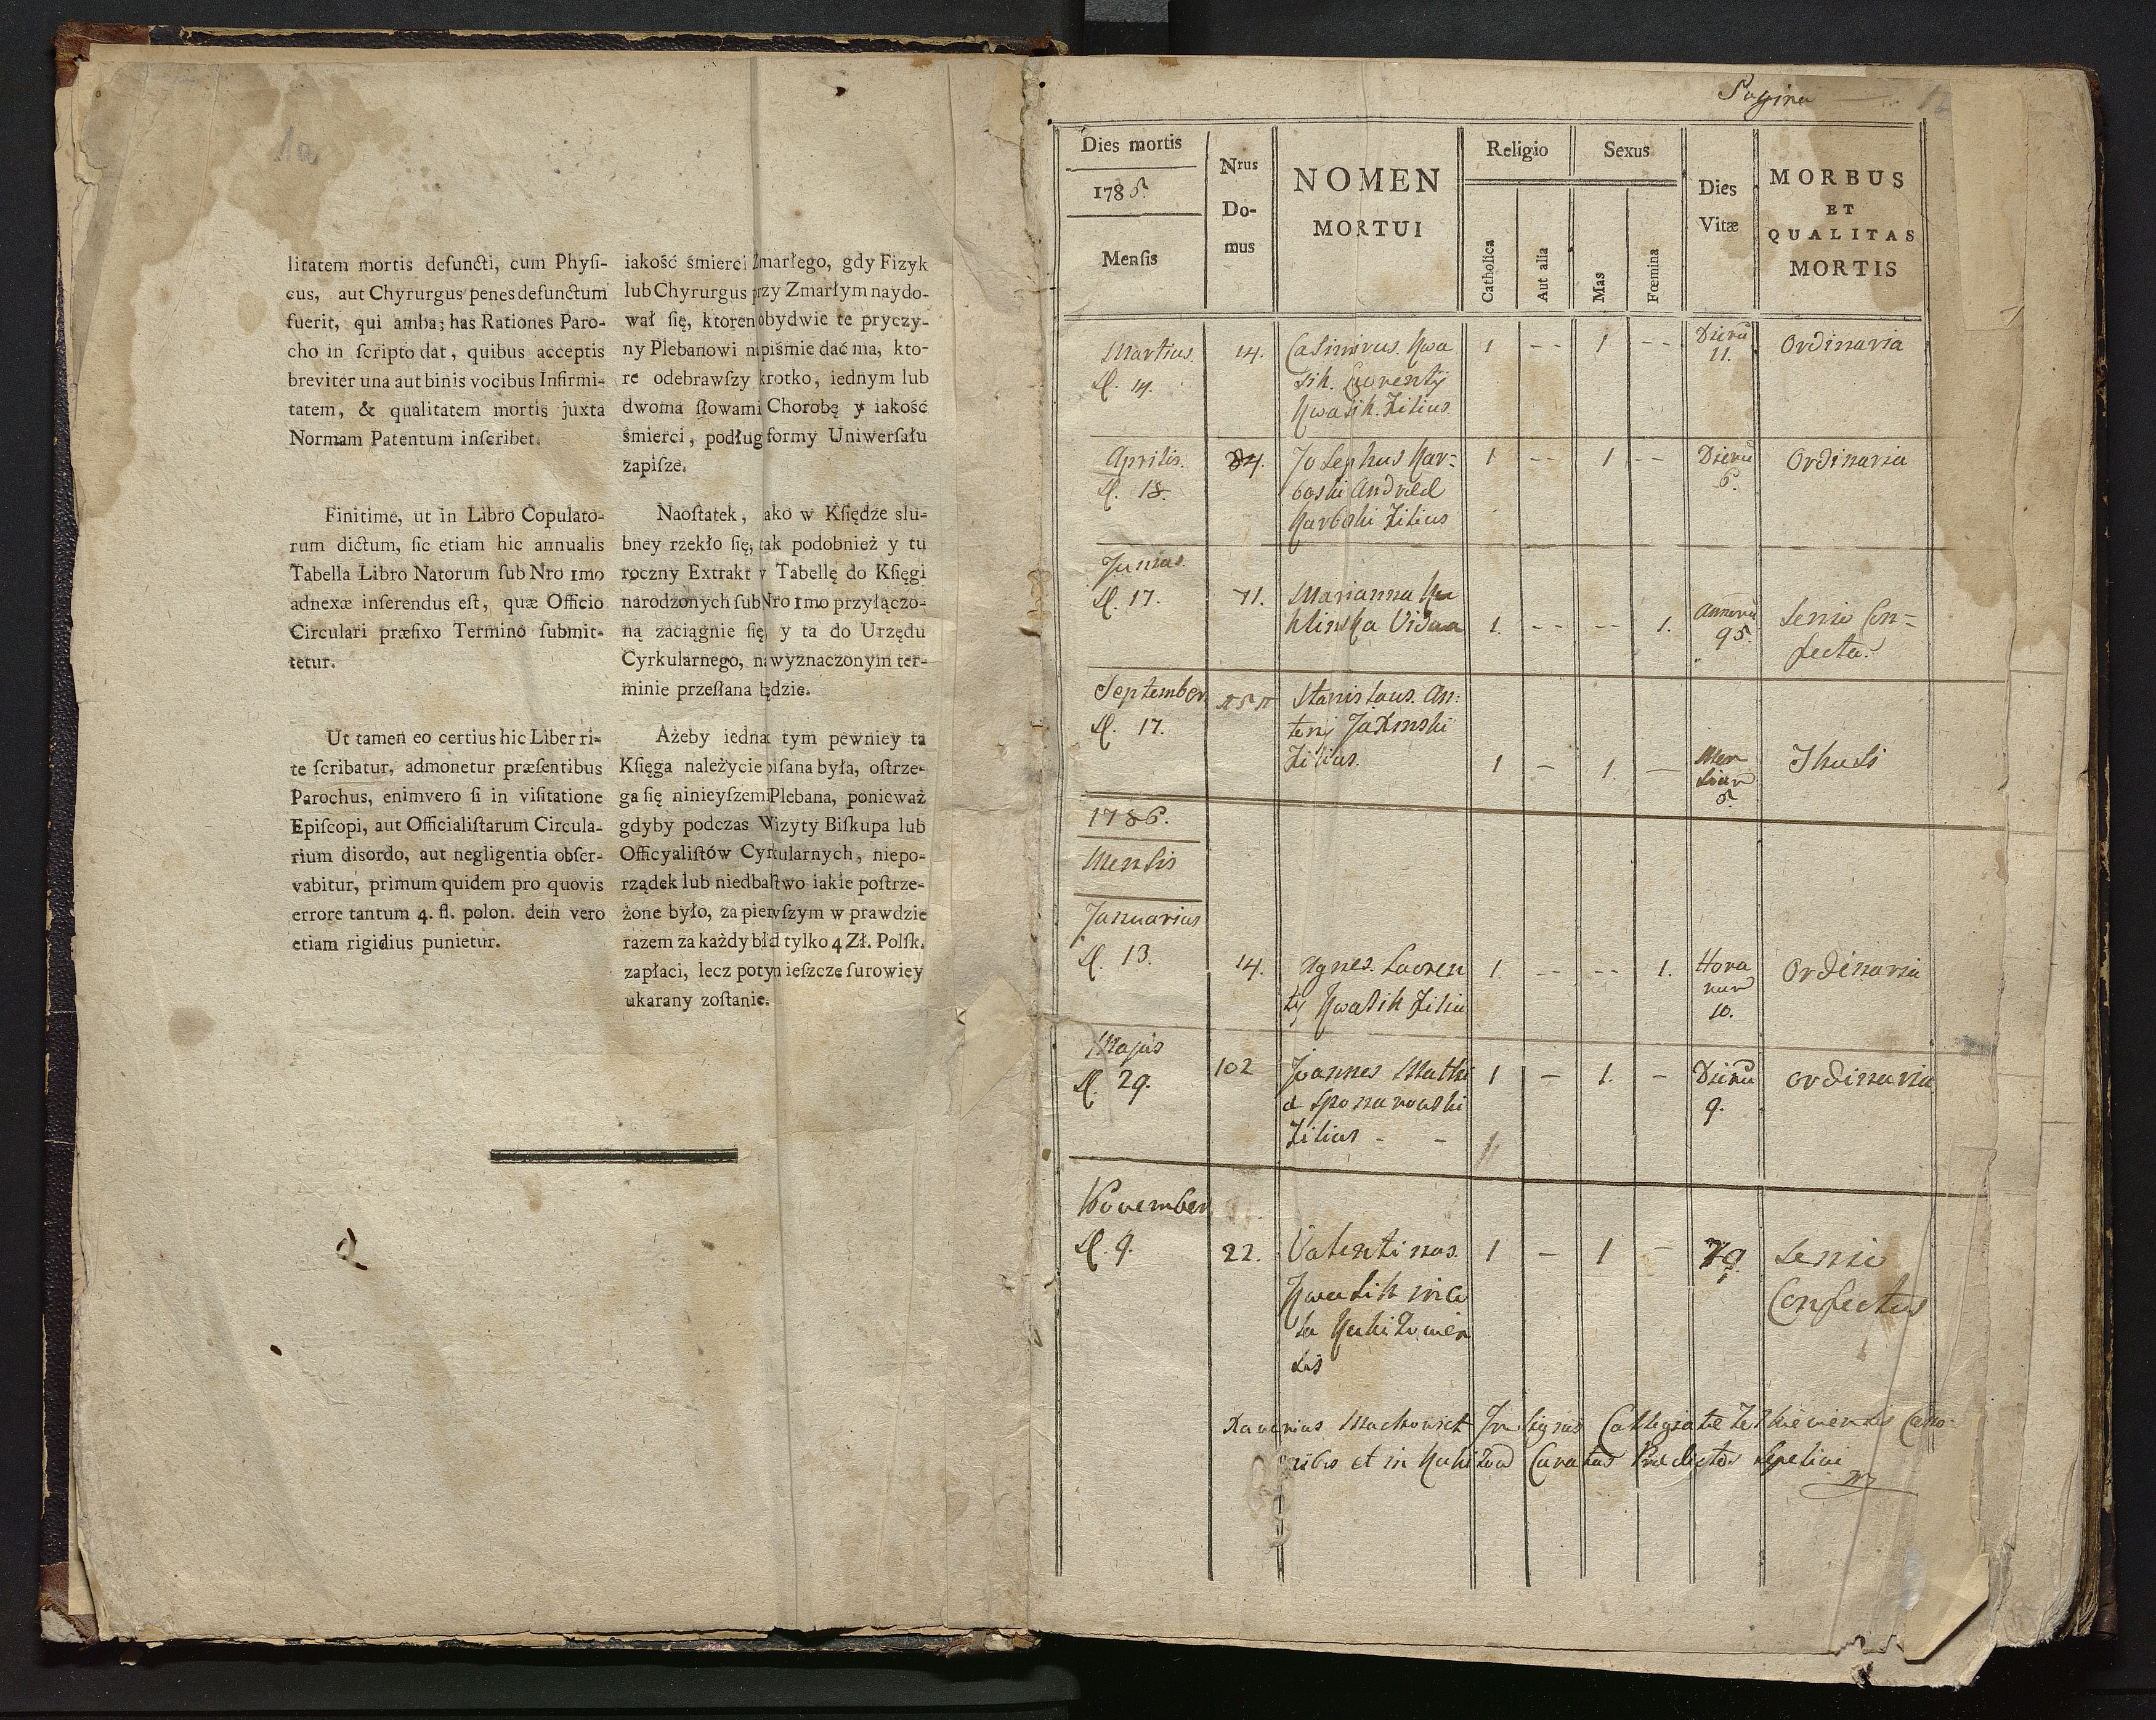 1a
litatem mortis defuncti, cum Phyſi-
cus, aut Chyrurgus penes defunctum
fuerit, qui amba; has Rationes Paro-
cho in ſcripto dat, quibus acceptis
breviter una aut binis vocibus Infirmi-
tatem, & qualitatem mortis juxta
Normam Patentum inſcribet.
Finitime, ut in Libro Copulato-
rum dictum, ſic etiam hic annualis
Tabella Libro Natorum ſub Nro 1mo
adnexæ inſerendus eſt, quæ Officio
Circulari præfixo Termino ſubmit-
tetur.
Ut tamen eo certius hic Liber ri-
te ſcribatur, admonetur præſentibus
Parochus, enimvero ſi in viſitatione
Epiſcopi, aut Officialiſtarum Circula-
rium disordo, aut negligentia obſer-
vabitur, primum quidem pro quovis
errore tantum 4. fl. polon. dein vero
etiam rigidius punietur.
iakość śmierci Zmarłego, gdy Fizyk
lub Chyrurgus przy Zmarłym naydo-
wał ſię, ktoren obydwie te pryczy-
ny Plebanowi na piśmie dać ma, kto-
re odebrawſzy krotko, iednym lub
dwoma ſłowami Chorobę y iakość
śmierci, podług formy Uniwerſału
zapiſze.
Naoſtatek, iako w Kſiędze slu-
bney rzekło ſię, tak podobnież y tu
roczny Extrakt y Tabellę do Kſięgi
narodzonych ſub Nro 1mo przyłączo-
ną zaciągnie ſię, y ta do Urzędu
Cyrkularnego, na wyznaczonym ter-
minie przeſłana będzie.
Ażeby iednak tym pewniey ta
Kſięga należycie piſana była, oſtrze-
ga ſię ninieyſzemi Plebana, ponieważ
gdyby podczas Wizyty Biſkupa lub
Officyaliſtów Cyrkularnych, niepo-
rządek lub niedbalſtwo iakie poſtrze-
żone było, za pierwſzym w prawdzie
razem za każdy błąd tylko 4 Zł. Polſk.
zapłaci, lecz potym ieſzcze ſurowiey
ukarany zoſtanie.
Pagina
Dies mortis
1785.
Menſis
Nrus
Do-
mus
NOMEN
MORTUI
Religio
Catholica
Aut alia
Sexus
Mas
Fœmina
Dies
Vitæ
MORBUS
ET
QUALITAS
MORTIS
Martius. 14. Casimirus. Kwa 1 -- 1 -- Dierū Ordinaria
d. 14. sik. Laurentij 11.
Kwasik. Filius.
Aprilis. 84. Josephus Kar= 1 -- 1 -- Dierū Ordinaria
d. 18. Andreæ 6.
Filius
Junius.
d. 17. 71. Marianna
Vidua 1. -- -- 1. Annorū Senio Con=
95 fecta.
September Stanislaus. An:
d. 17. tonij
Filius. 1 - 1. - Men
5.
1786.
Mensis
Januarius
d. 13. 14. Agnes. Lauren 1. -- -- 1. Hora Ordinaria
tij Kwasik Filia rum
10.
Majus
d. 29. 102 Joannes Mathi 1 - 1. - Dierū Ordinaria
æ 9.
Filius - - 1.
November
d. 9. 22. Valentinus. 1 - 1 - 79. Senio
Kwasik inco Confectus
la
sis
Xaverius Insignis Collegiatæ Cano-
et in Curatus